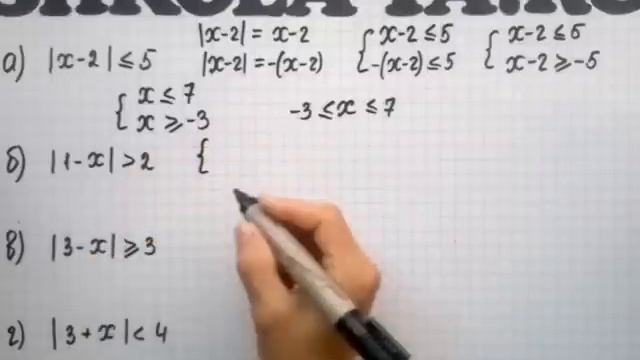 |x-2| = x-2 { x-2 ≤ 5 { x-2 ≤ 5
а) |x-2| ≤ 5 |x-2| = -(x-2) -(x-2) ≤ 5 x-2 ⩾ -5
{ x ≤ 7
x ⩾ -3 -3 ≤ x ≤ 7
б) |1-x| > 2 {
в) |3-x| ⩾ 3
г) |3+x| < 4